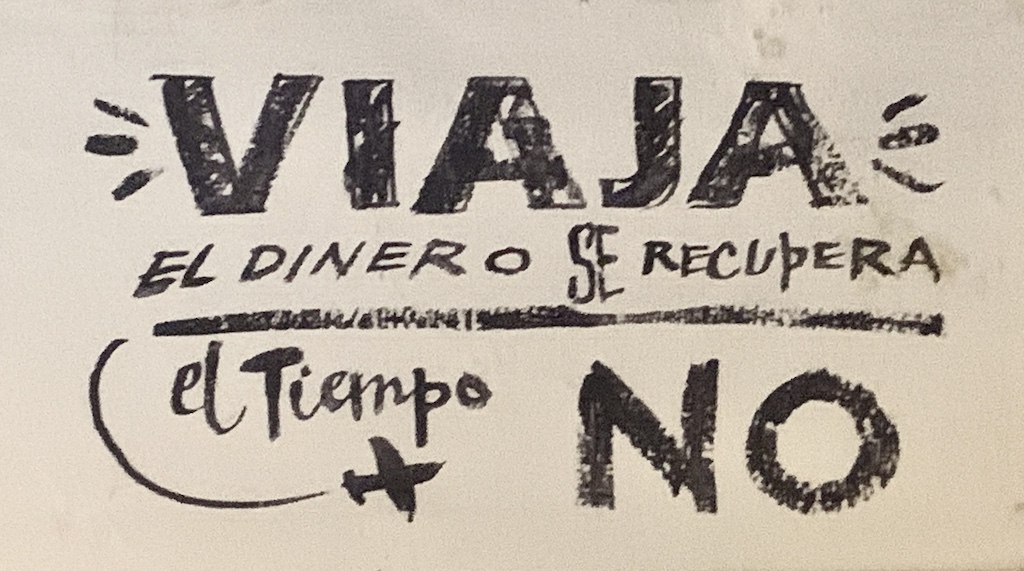 VIAJA
EL DINERO SE RECUPERA
el Tiempo NO